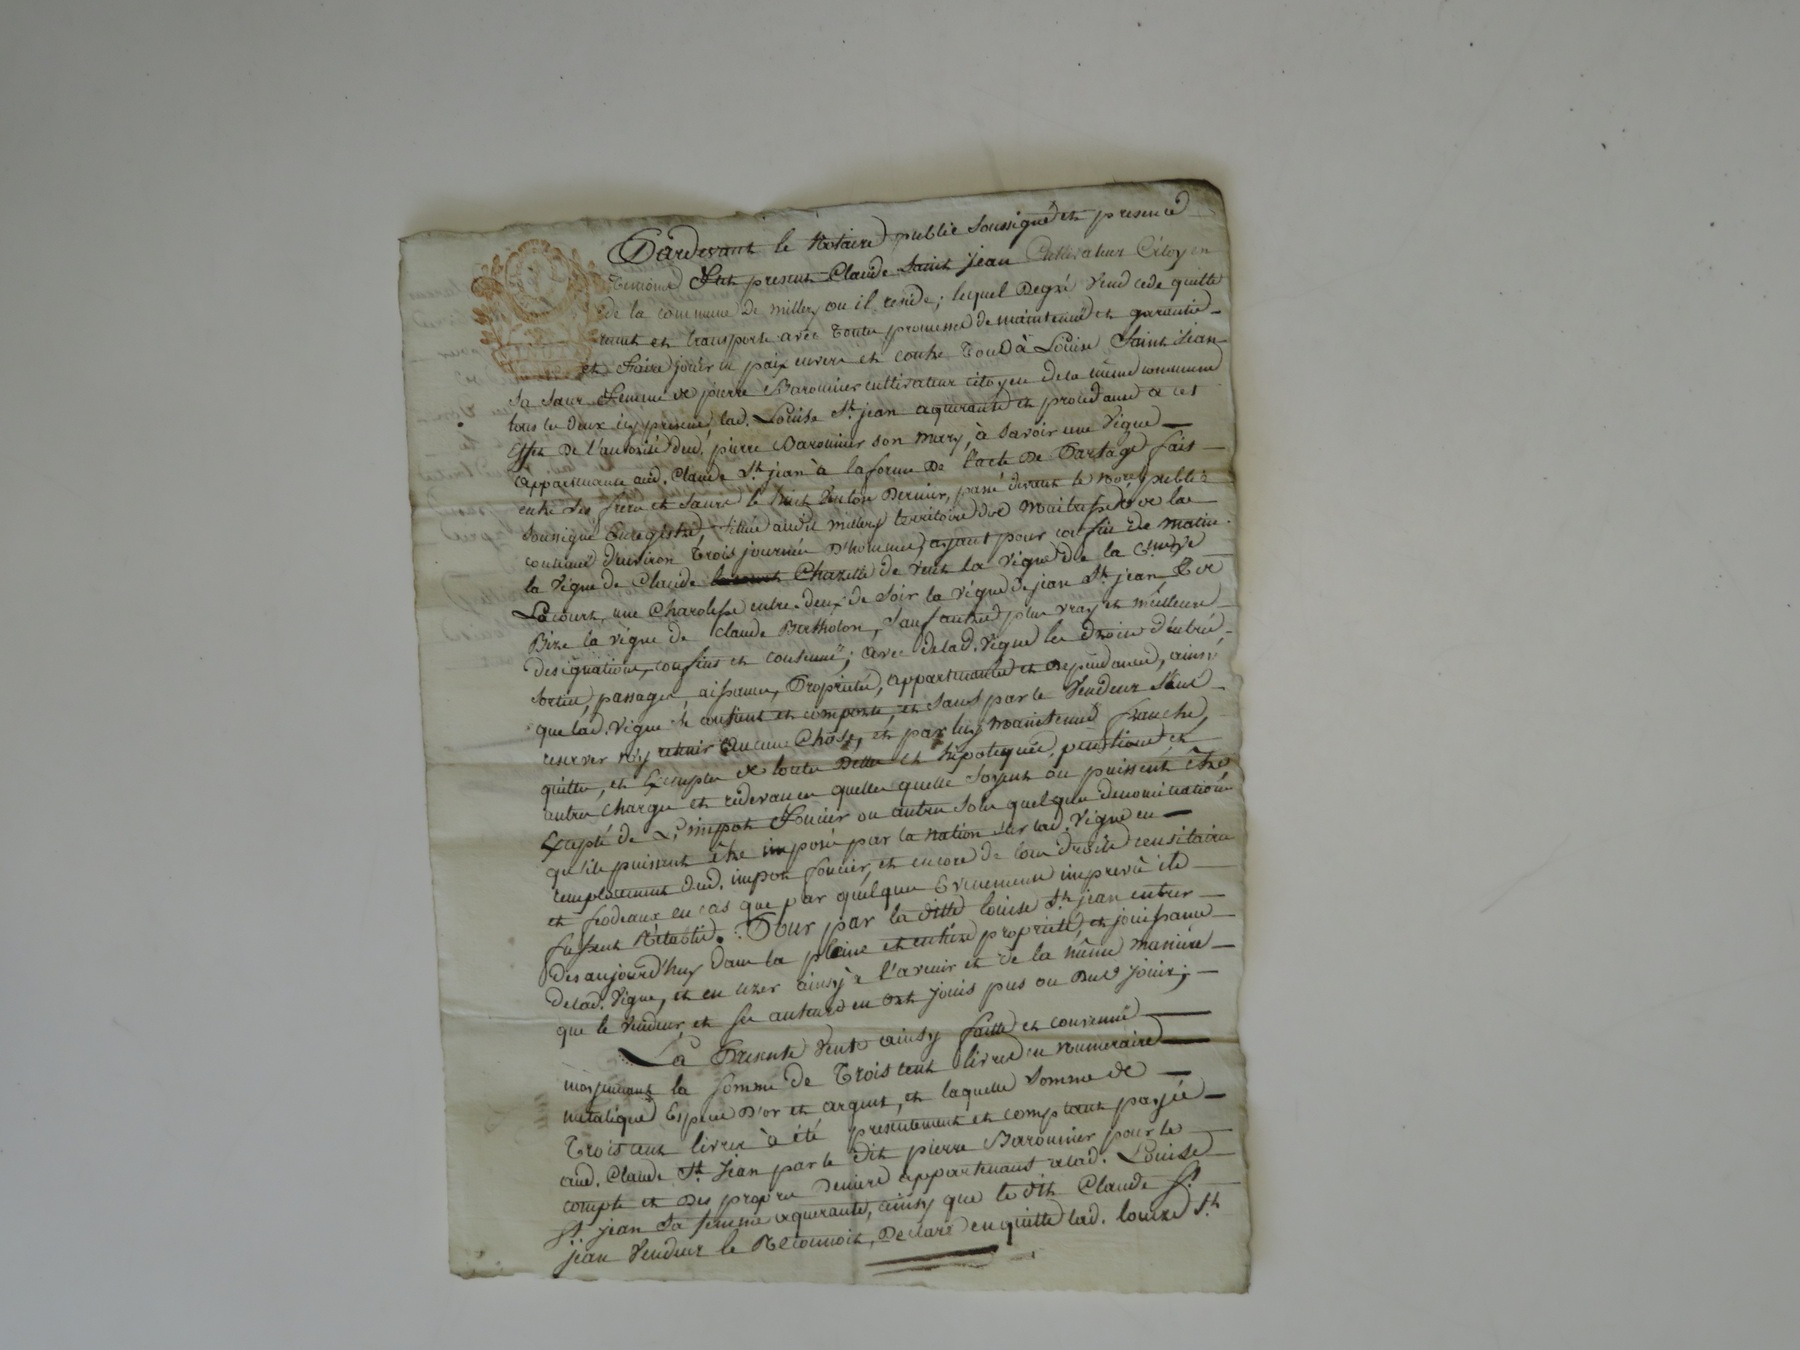 Pardevant le Notaire public Soussigné et presence
Temoins Fut present Claude Saint jean Cultivateur Citoyen
de la commune de millery ou il reside; lequel Degré Vend cede quitte
remet et transporte avec toutes promesses de maintenue et garantie
et faire jouir en paix envers et contre Tous à Louise Saint Jean
Sa Sœur Femme de pierre Baronnier cultivateur citoyen de la même commune
tous les deux icy presents, lad. Louise St. jean aquerante et procedante a cet
Effet de l'autorité dud. pierre Baronnier son mary, à Savoir une Vigne
appartenante aud. Claude St. jean à la forme De l'acte De Partage fait
entre Ses frere et Sœurs le huit Dernier, passé devant le Nore. public
Soussigné Enregistré, située audit millery territoire de la
contenue d'environ Trois journées D'hommes, ayant pour confin de matin
la Vigne de Claude Chazelle de Vent La Vigne de la Cne. Ve
Lacourt, une Charolesse entre-deux de Soir la Vigne de jean St. jean, Et de
Bize la Vigne de Claude Bertholon, Sauf autres plus vrays et meilleurs
designations, confins et contenues; avec de lad. Vigne les Droits d'entrées,
Sorties, passages, aisances, Proprietés, appartenances et dependances, ainsi
que lad. Vigne Se contient et comporte, et Sans par le Vendeur S'en
reserver n'y retenir aucune Chose, et par luy maintenue franche,
quitte, et Exempte de toutes Dettes et hipoteques, pentions et
autres charges et redevances quelles quelle Soyent ou puissent être
Exepté de L'impot Foncier ou autres Sous quelques denominations
qu'ils puissent être imposés par la nation Sur lad. Vigne en
remplacement dud. impot foncier, et encore de tous droits censitaires
et feodeaux en cas que par quelques Evenements imprevû ils
fussent Retablis. Pour par la ditte louise St. jean entrer
des aujourd'huy dans la pleine et entiere proprieté, et jouissance
de lad. Vigne, et en uzer ainsy à l'avenir et de la même maniere
que le Vendeur et Ses auteurs en ont jouis pus ou Dus jouir;
La Presente Vente ainsy faitte et convenue
moyennant la Somme de Trois cent livres en Numeraire
metalique Espece D'or et argent, et laquelle Somme de
Trois cent livres à été presentement et comptant payée
aud. Claude St. Jean par le dit pierre Baronnier pour le
compte et Des propres Deniers appartenants a lad. Louise
St. jean Sa femme aquerante, ainsy que le dit Claude St.
jean Vendeur le Reconnoit, Declare en quitte lad. louize St.